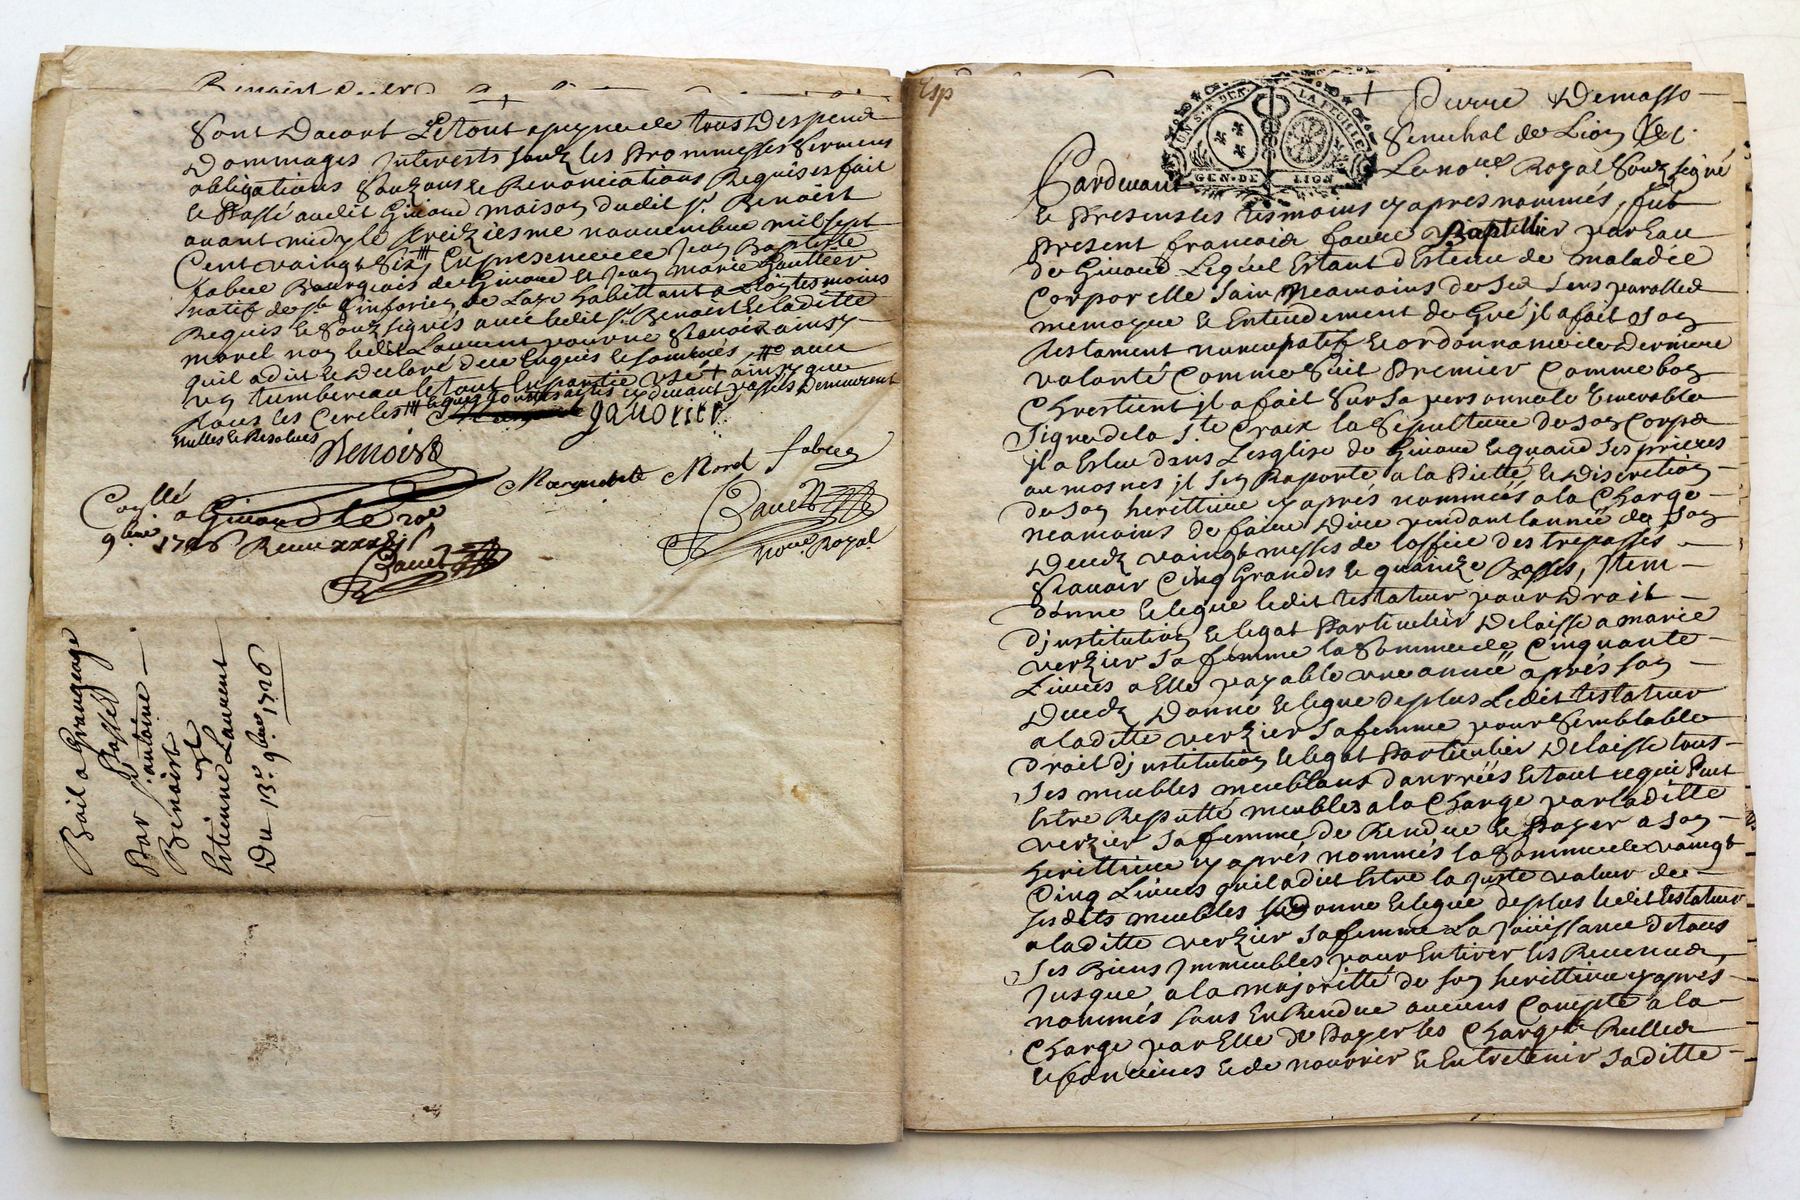 Sont dacort Letout apeyne de tous despend
dommages Interests soubz les Prommesses serments
obligations Soumons Renonciations Requises fait
le Passé audit Givord maison dudit Sr. Benoist
avant midy le treiziesme novembre mil sept
Cent vaingt Six En presence de Jean Baptiste
fabre Bourgeois de Givord et Jean marie Gautier
natif de St. Sinforien de habittant a tesmoins
Requis le Soubzsignés avec ledit Sr. Benoist et laditte
morel non ledit Laurent pour ne scavoir ainsy
quil a dit et declaré de ce Enquis et sommés avec
un tumbereau le tout En partie usé + ainsy que
tous les Cercles cy devant passés demeurent
nulles et Resolues
Benoist
gautier
Marguerite Morel fabre
Bavet
nore. Royal
Conllé a Givord Le
9bre 1726 Receu
Bavet
Bail a Grangeage
Passé
Par Sr. antoine
Benoist
Et
Estienne Laurent
Du 13e. 9bre 1726
UN S. + DEN. LA FEUILLE
GEN. DE LION
Pierre Demasso
Senechal de Lion &c.
Pardevant Le nore. Royal Soubzsigné
et Presens les tesmoins cy apres nommés, fut
Present francois faure Baptellier par Eau
de Givord Lequel Estant detenu de maladie
Corporelle sain neamoins de ses sens parolles
memoyre et Entendement de Gré jl a fait son
testament nuncupatif et ordonnance de derniere
volonté Comme suit Premier Comme bon
Chrestient jl a fait Sur sa personne le Venerable
signe de la Ste. Croix la Sepulture de son Corps
jl a Esleu dans Lesglise de Givord et quand ses prieres
aumosnes jl sen Raporte a la Pietté et discretion
de son herittiere cy aprés nommés a la Charge
neamoins de faire dire pendant lannée de son
deceds vaingt messes de loffice des trepassés
scavoir Cinq Grandes et quainze Basses, Item
donne et legue ledit testateur pour droit
djnstitution et legat Particulier delaisse a marie
verzier sa femme la somme de Cinquante
Livres a Elle payable une année aprés son
deceds donne et legue de plus Ledit testateur
a laditte verzier sa femme pour semblable
droit djnstitution et legat Particulier delaisse tous
ses meubles meublans danrrées et tout ce qui Peut
Estre Reputté meubles a la Charge par laditte
verzier sa femme de Rendre et Payer a son
herittiere cy aprés nommés la somme de vaingt
Cinq Livres quil a dict Estre la juste valeur de
sesdits meubles donne et legue de plus ledit testateur
a laditte verzier sa femme La jouissance de tous
ses Biens jmmeubles pour En tirer les Revenus
jusque a la majoritté de son herittiere cy aprés
nommés sans En Rendre aucuns Compte a la
Charge par Elle de Payer les Charges Reelles
et foncieres et de nourrir et Entretenir saditte